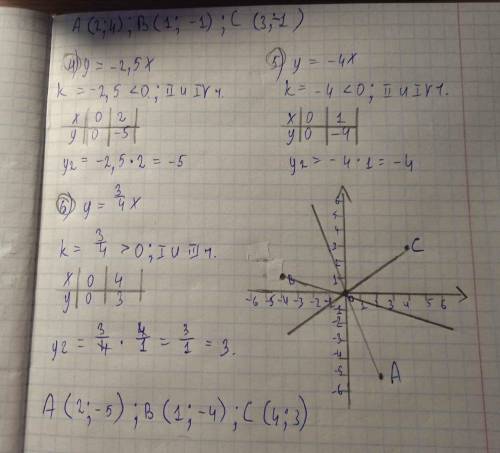 A(2;4); B(1; -1); C(3;-1)
4) y = -2,5x
k = -2,5 < 0; II и IV ч.
x | 0 | 2
y | 0 | -5
y2 = -2,5 · 2 = -5
5) y = -4x
k = -4 < 0; II и IV ч.
x | 0 | 1
y | 0 | -4
y2 = -4 · 1 = -4
6) y = 3/4 x
k = 3/4 > 0; I и III ч.
x | 0 | 4
y | 0 | 3
y2 = 3/4 · 4/1 = 3/1 = 3.
C
B
-6 -5 -4 -3 -2 -1
A
A(2;-5); B(1;-4); C(4;3)